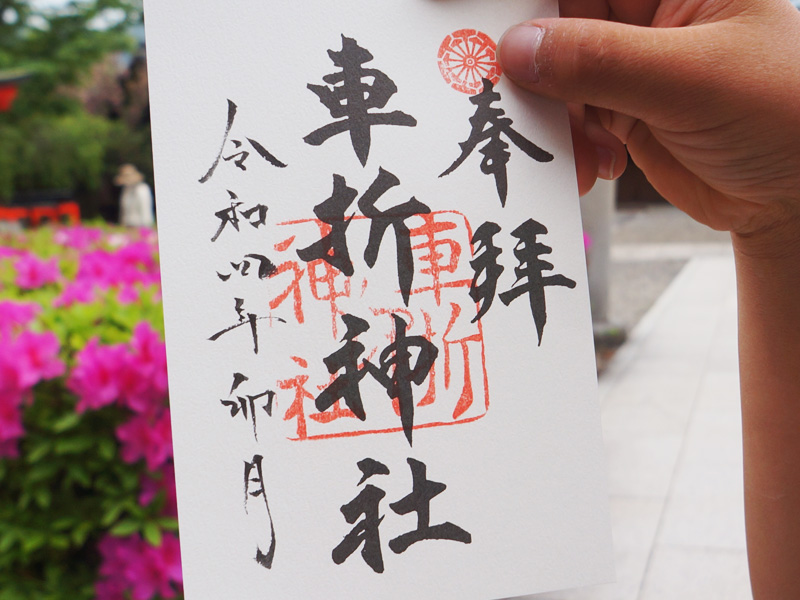 奉拝
車折神社
令和四年卯月
車折
神社